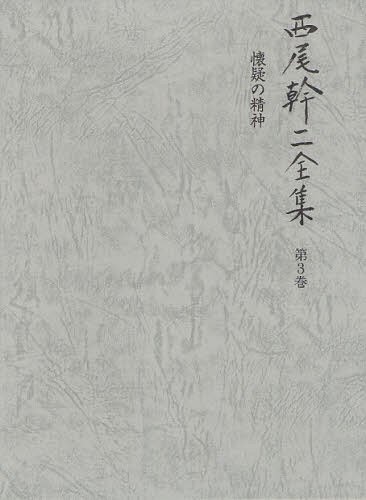 西尾幹二全集
第3巻
懐疑の精神